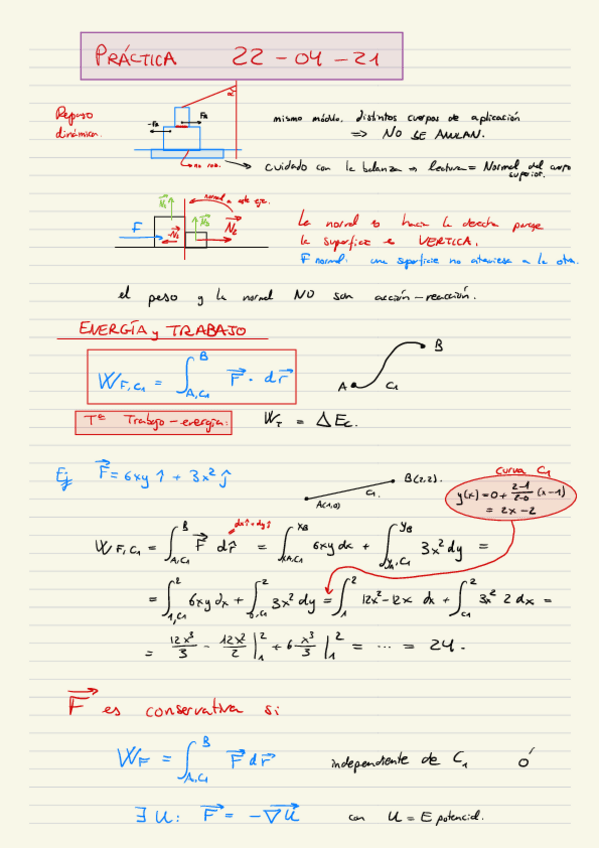 PRÁCTICA 22-04-21
Repaso
dinámica.
-FR
FR
mismo módulo. distintos cuerpos de aplicación
=> NO SE ANULAN.
cuidado con la balanza → lectura = Normal del cuerpo
superior.
normal a este eje.
F
-N2
N2
La normal es hacia la derecha porque
la superficie es VERTICAL.
F normal: una superficie no atraviese a la otra.
el peso y la normal NO son acción-reacción.
ENERGÍA y TRABAJO
W F,C1 = ∫_{A,C1}^{B} F⃗ · dr⃗
A C1 B
Tª Trabajo-energía:
W_T = ΔEc.
Ej F⃗ = 6xy î + 3x² ĵ
A(1,0) C1 B(2,2).
curva C1
y(x) = 0 + (2-1)/(2-0) (x-1)
= 2x-2
dx î + dy ĵ
W F,C1 = ∫_{A,C1}^{B} F⃗ dr⃗ = ∫_{xA,C1}^{xB} 6xy dx + ∫_{yA,C1}^{yB} 3x² dy =
= ∫_{1,C1}^{2} 6xy dx + ∫_{0,C1}^{2} 3x² dy = ∫_{1}^{2} 12x²-12x dx + ∫_{C1}^{2} 3x² 2 dx =
= 12x³/3 - 12x²/2 |_1^2 + 6 x³/3 |_1^2 = ... = 24.
F⃗ es conservativa si
W_F = ∫_{A,C1}^{B} F⃗ dr⃗ independiente de C1 ó
∃ U: F⃗ = -∇U⃗ con U = E potencial.